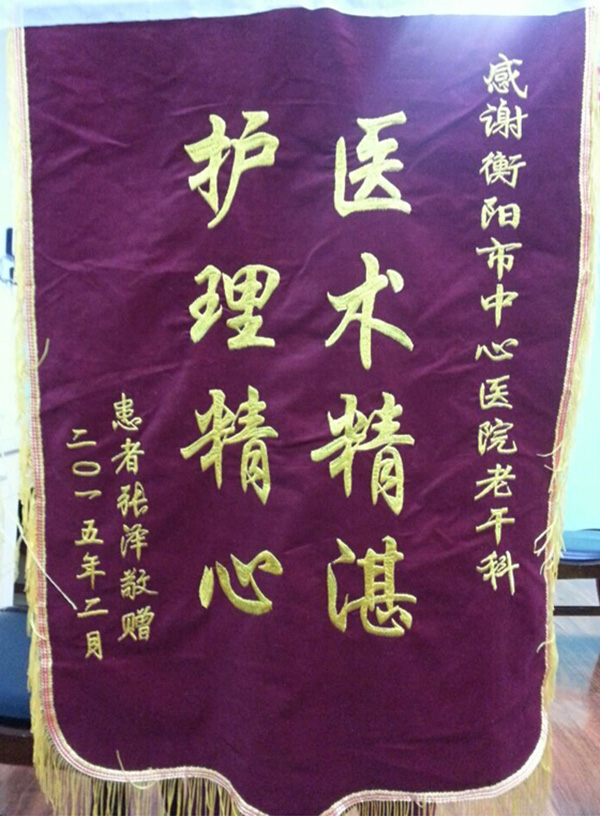 感谢衡阳市中心医院老干科
医术精湛
护理精心
患者张泽敬赠
二〇一五年二月